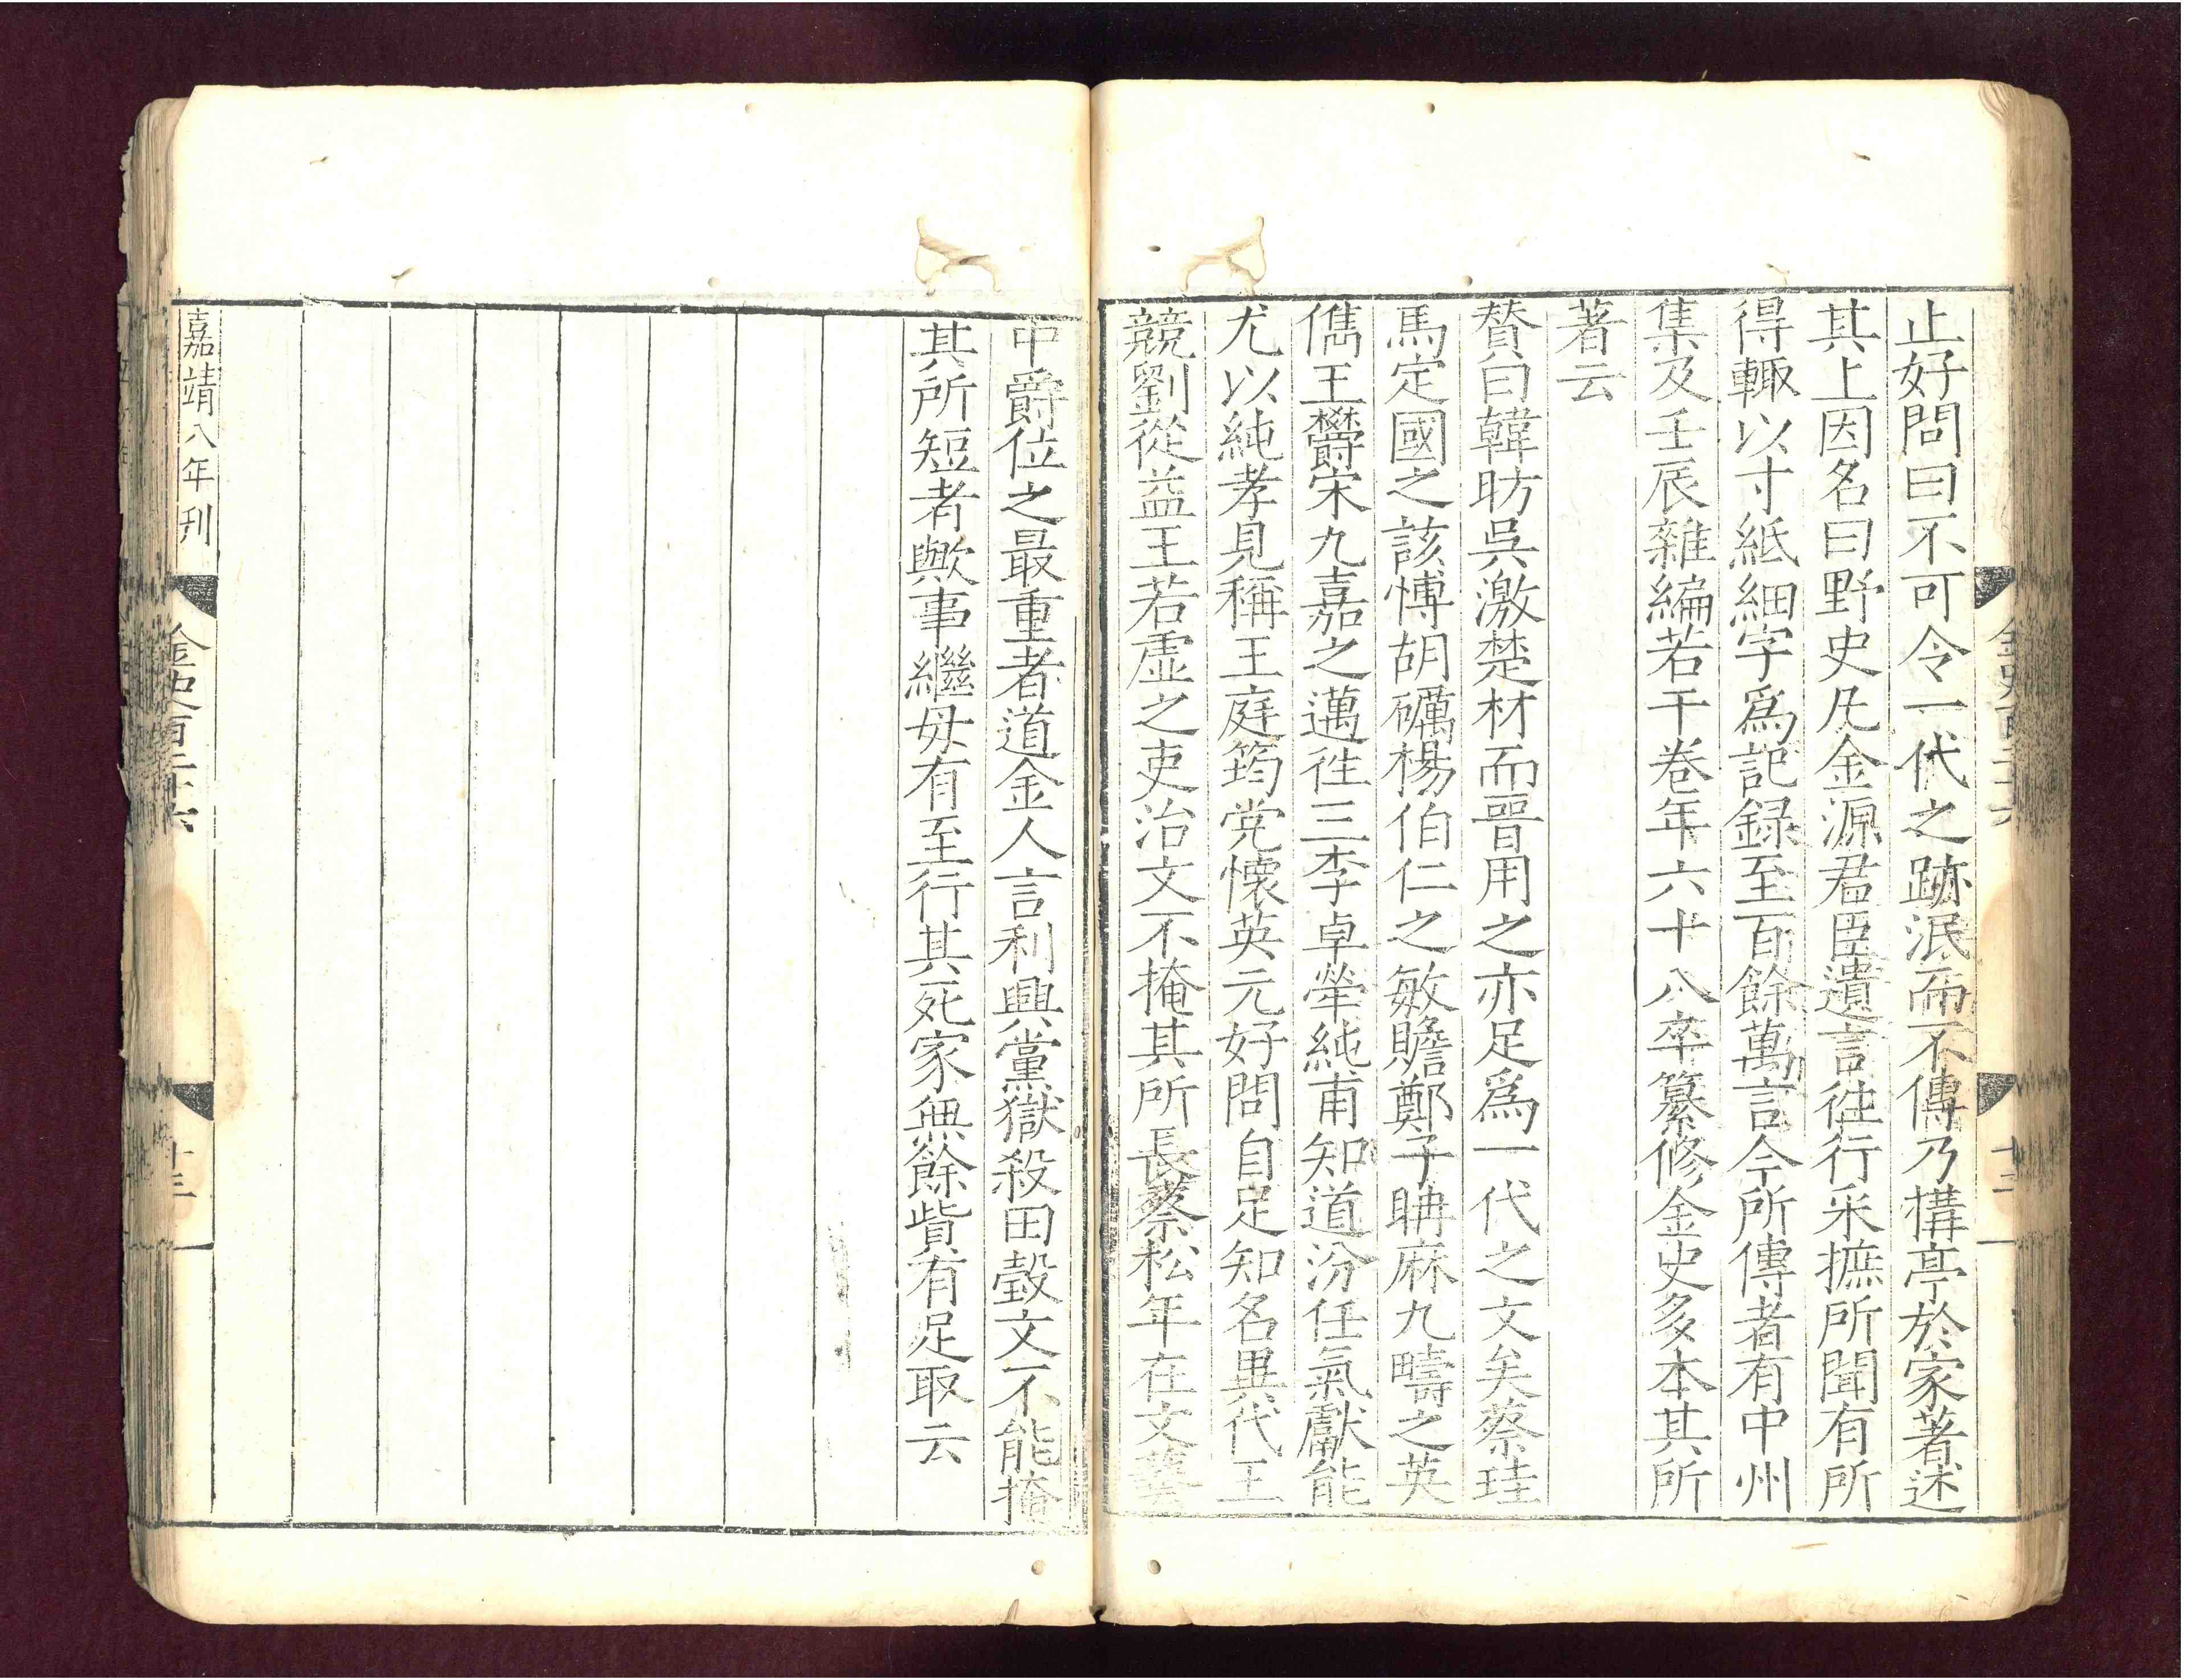 止好問曰不可令一代之跡泯而不傳乃構亭於家著述
其上因名曰野史凡金源君臣遺言徃行采摭所聞有所
得輙以寸紙細字爲記録至百餘萬言今所傳者有中州
集及壬辰雜編若干卷年六十八卒纂修金史多本其所
著云
賛曰韓昉吳激楚材而晉用之亦足爲一代之文矣蔡珪
馬定國之該愽胡礪楊伯仁之敏贍鄭子聃麻九疇之英
儁王欝宋九嘉之邁徃三李卓犖純甫知道汾任氣獻能
尤以純孝見稱王庭筠党懷英元好問自足知名異代王
競劉從益王若虛之吏治文不掩其所長蔡松年在文藝
金史百二十六
十二
中爵位之最重者道金人言利興黨獄殺田瑴文不能掩
其所短者歟事繼母有至行其死家無餘貲有足取云
嘉靖八年刋
金史百二十六
十三